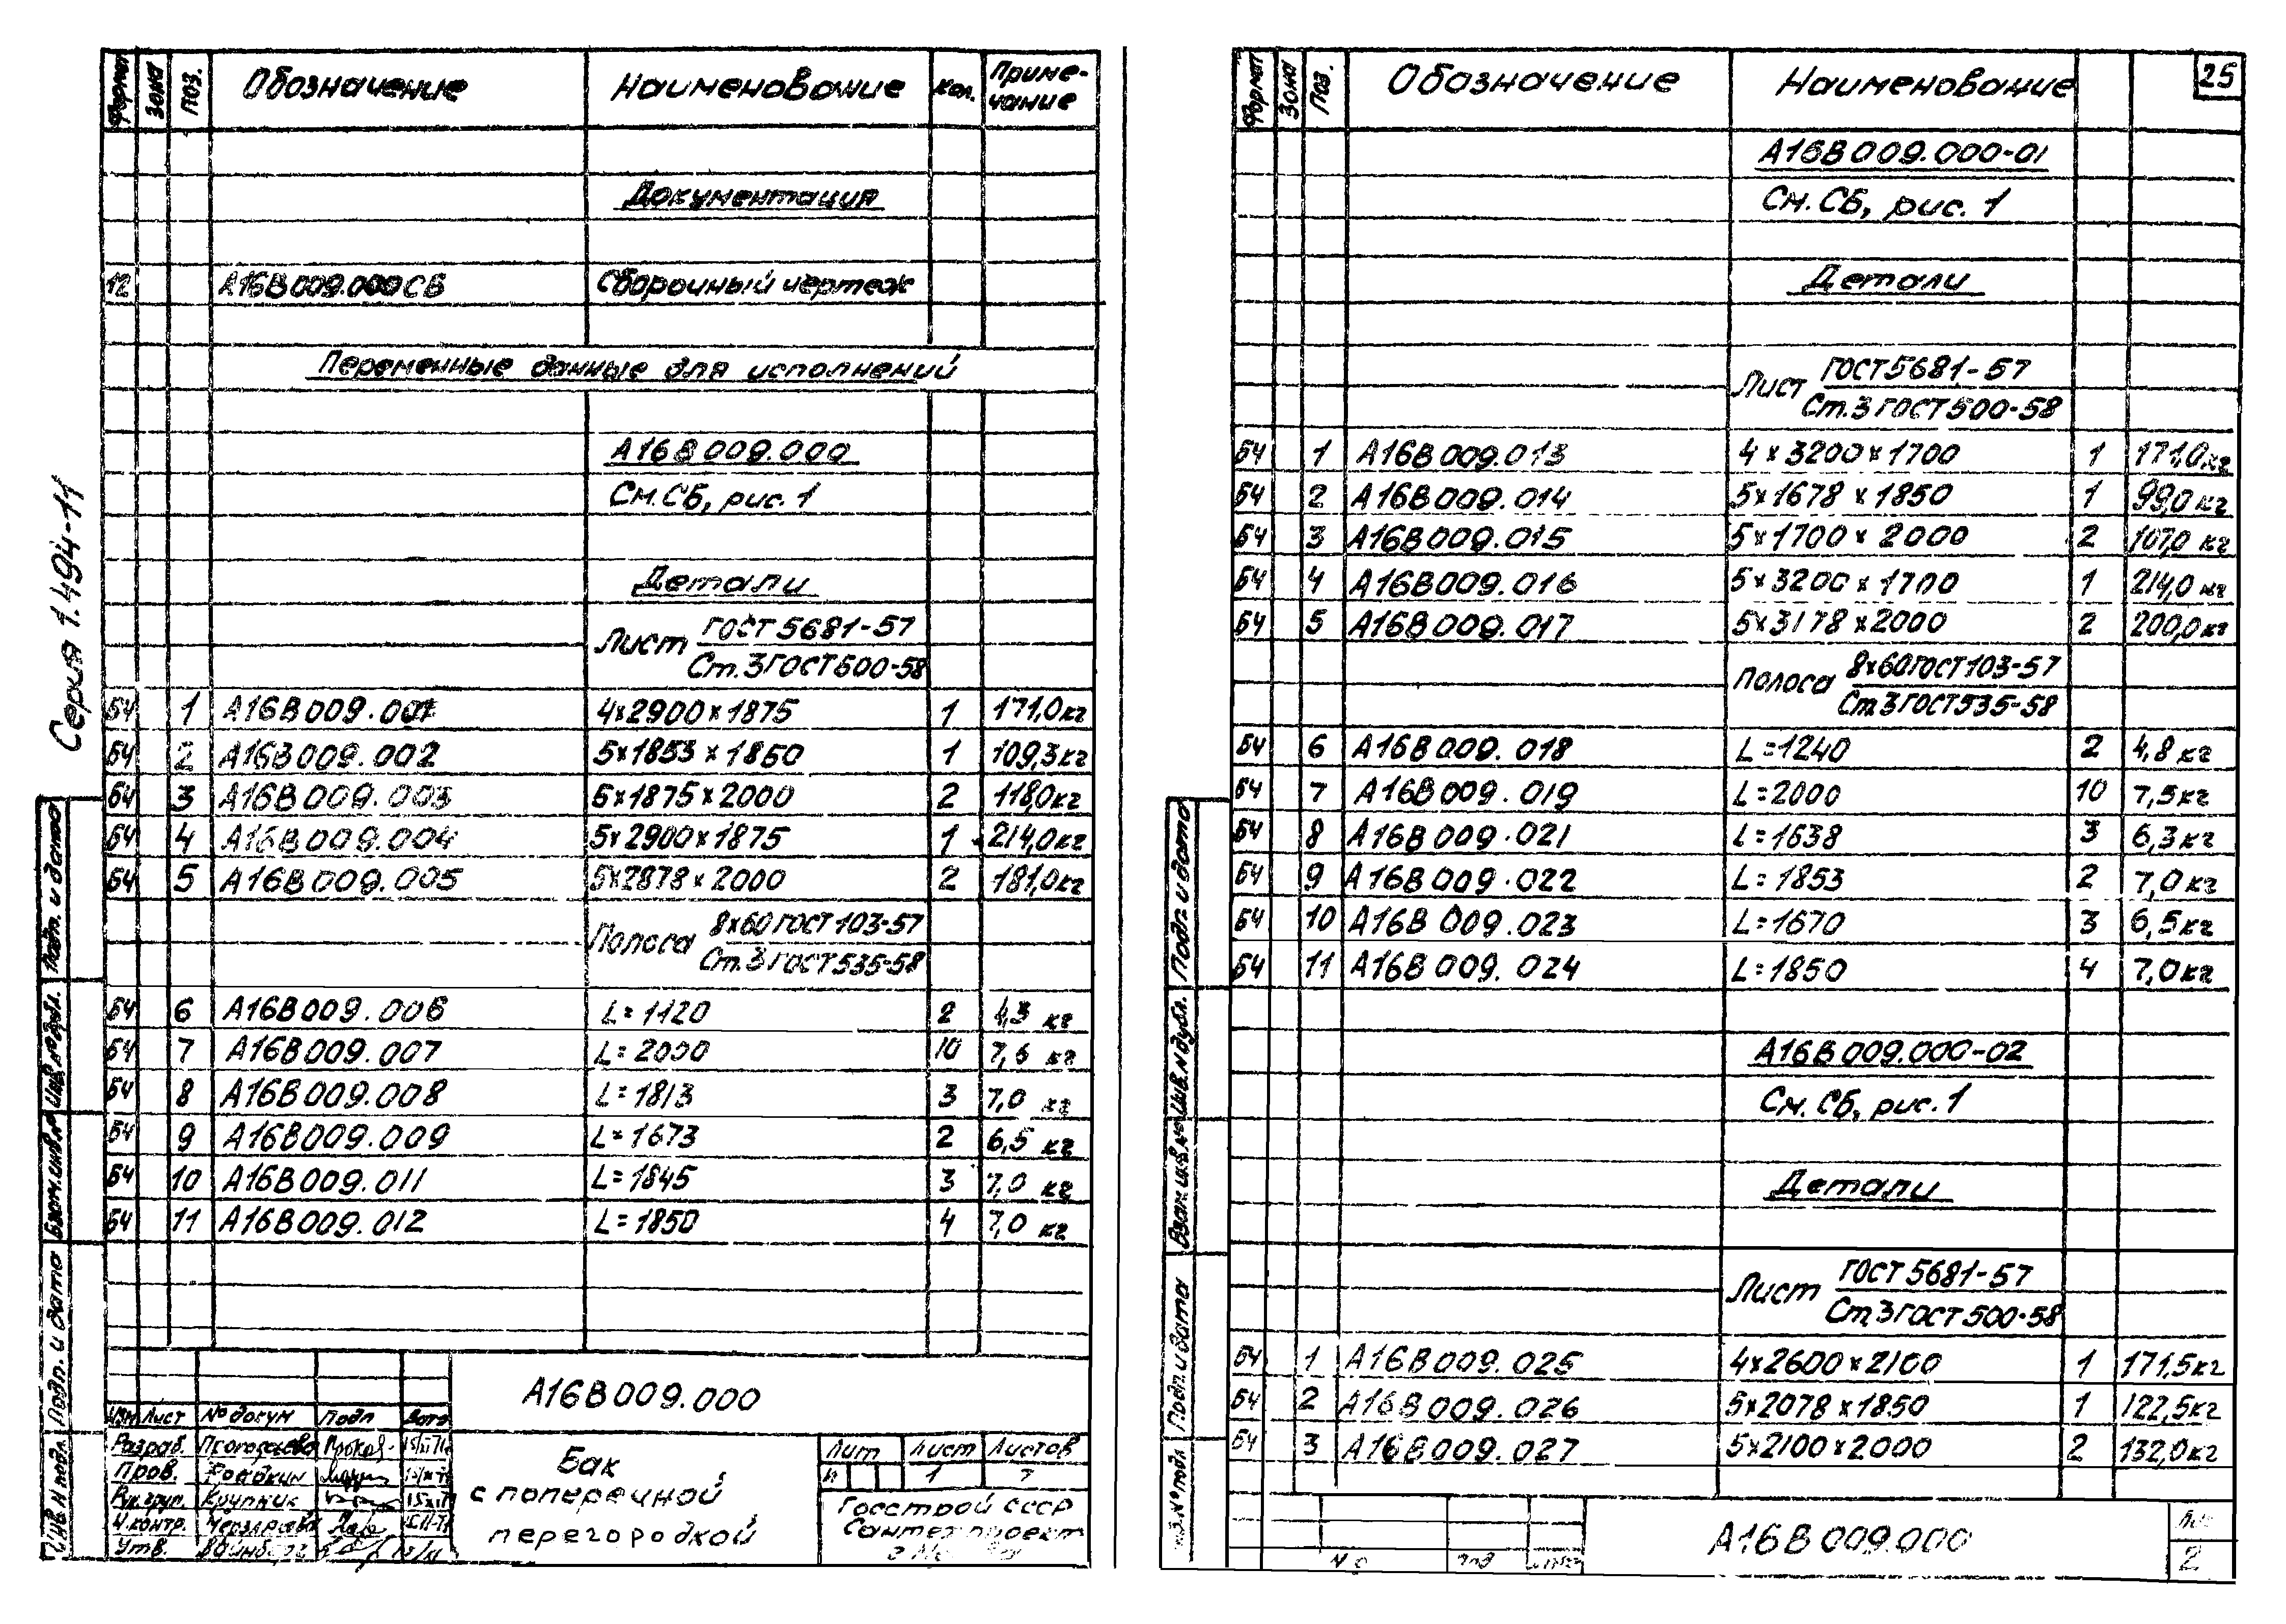 Серия 1.494-11
Формат Зона Поз. Обозначение Наименование Кол. Приме-чание
Документация
12 А16В009.000СБ Сборочный чертеж
Переменные данные для исполнений
А16В009.000
См. СБ, рис. 1
Детали
Лист ГОСТ 5681-57
Ст.3 ГОСТ 500-58
БЧ 1 А16В009.001 4х2900х1875 1 171,0кг
БЧ 2 А16В009.002 5х1853х1850 1 109,3кг
БЧ 3 А16В009.003 5х1875х2000 2 118,0кг
БЧ 4 А16В009.004 5х2900х1875 1 214,0кг
БЧ 5 А16В009.005 5х2878х2000 2 181,0кг
Полоса 8х60 ГОСТ 103-57
Ст.3 ГОСТ 535-58
БЧ 6 А16В009.006 L=1120 2 4,3 кг
БЧ 7 А16В009.007 L=2000 10 7,5 кг
БЧ 8 А16В009.008 L=1813 3 7,0 кг
БЧ 9 А16В009.009 L=1673 2 6,5 кг
БЧ 10 А16В009.011 L=1845 3 7,0 кг
БЧ 11 А16В009.012 L=1850 4 7,0 кг
Подп. и дата
Инв.№дубл.
Взам.инв.№
Подп. и дата
Инв.№подл.
А16В009.000
Изм Лист №докум Подп Дата
Разраб.
Пров.
Рук.груп. Крупник
Н.контр.
Утв. Вайнберг
Бак
с поперечной
перегородкой
Лит Лист Листов
И 1 7
Госстрой СССР
Сантехпроект
25
Формат Зона Поз. Обозначение Наименование
А16В009.000-01
См. СБ, рис. 1
Детали
Лист ГОСТ 5681-57
Ст.3 ГОСТ 500-58
БЧ 1 А16В009.013 4х3200х1700 1 171,0кг
БЧ 2 А16В009.014 5х1678х1850 1 99,0 кг
БЧ 3 А16В009.015 5х1700х2000 2 107,0 кг
БЧ 4 А16В009.016 5х3200х1700 1 214,0 кг
БЧ 5 А16В009.017 5х3178х2000 2 200,0кг
Полоса 8х60 ГОСТ 103-57
Ст.3 ГОСТ 535-58
БЧ 6 А16В009.018 L=1240 2 4,8 кг
БЧ 7 А16В009.019 L=2000 10 7,5кг
БЧ 8 А16В009.021 L=1638 3 6,3кг
БЧ 9 А16В009.022 L=1853 2 7,0кг
БЧ 10 А16В009.023 L=1670 3 6,5кг
БЧ 11 А16В009.024 L=1850 4 7,0кг
А16В009.000-02
См. СБ, рис. 1
Детали
Лист ГОСТ 5681-57
Ст.3 ГОСТ 500-58
БЧ 1 А16В009.025 4х2600х2100 1 171,5кг
БЧ 2 А16В009.026 5х2078х1850 1 122,5кг
БЧ 3 А16В009.027 5х2100х2000 2 132,0кг
Подп. и дата
Инв.№дубл.
Взам.инв.№
Подп. и дата
А16В009.000
2